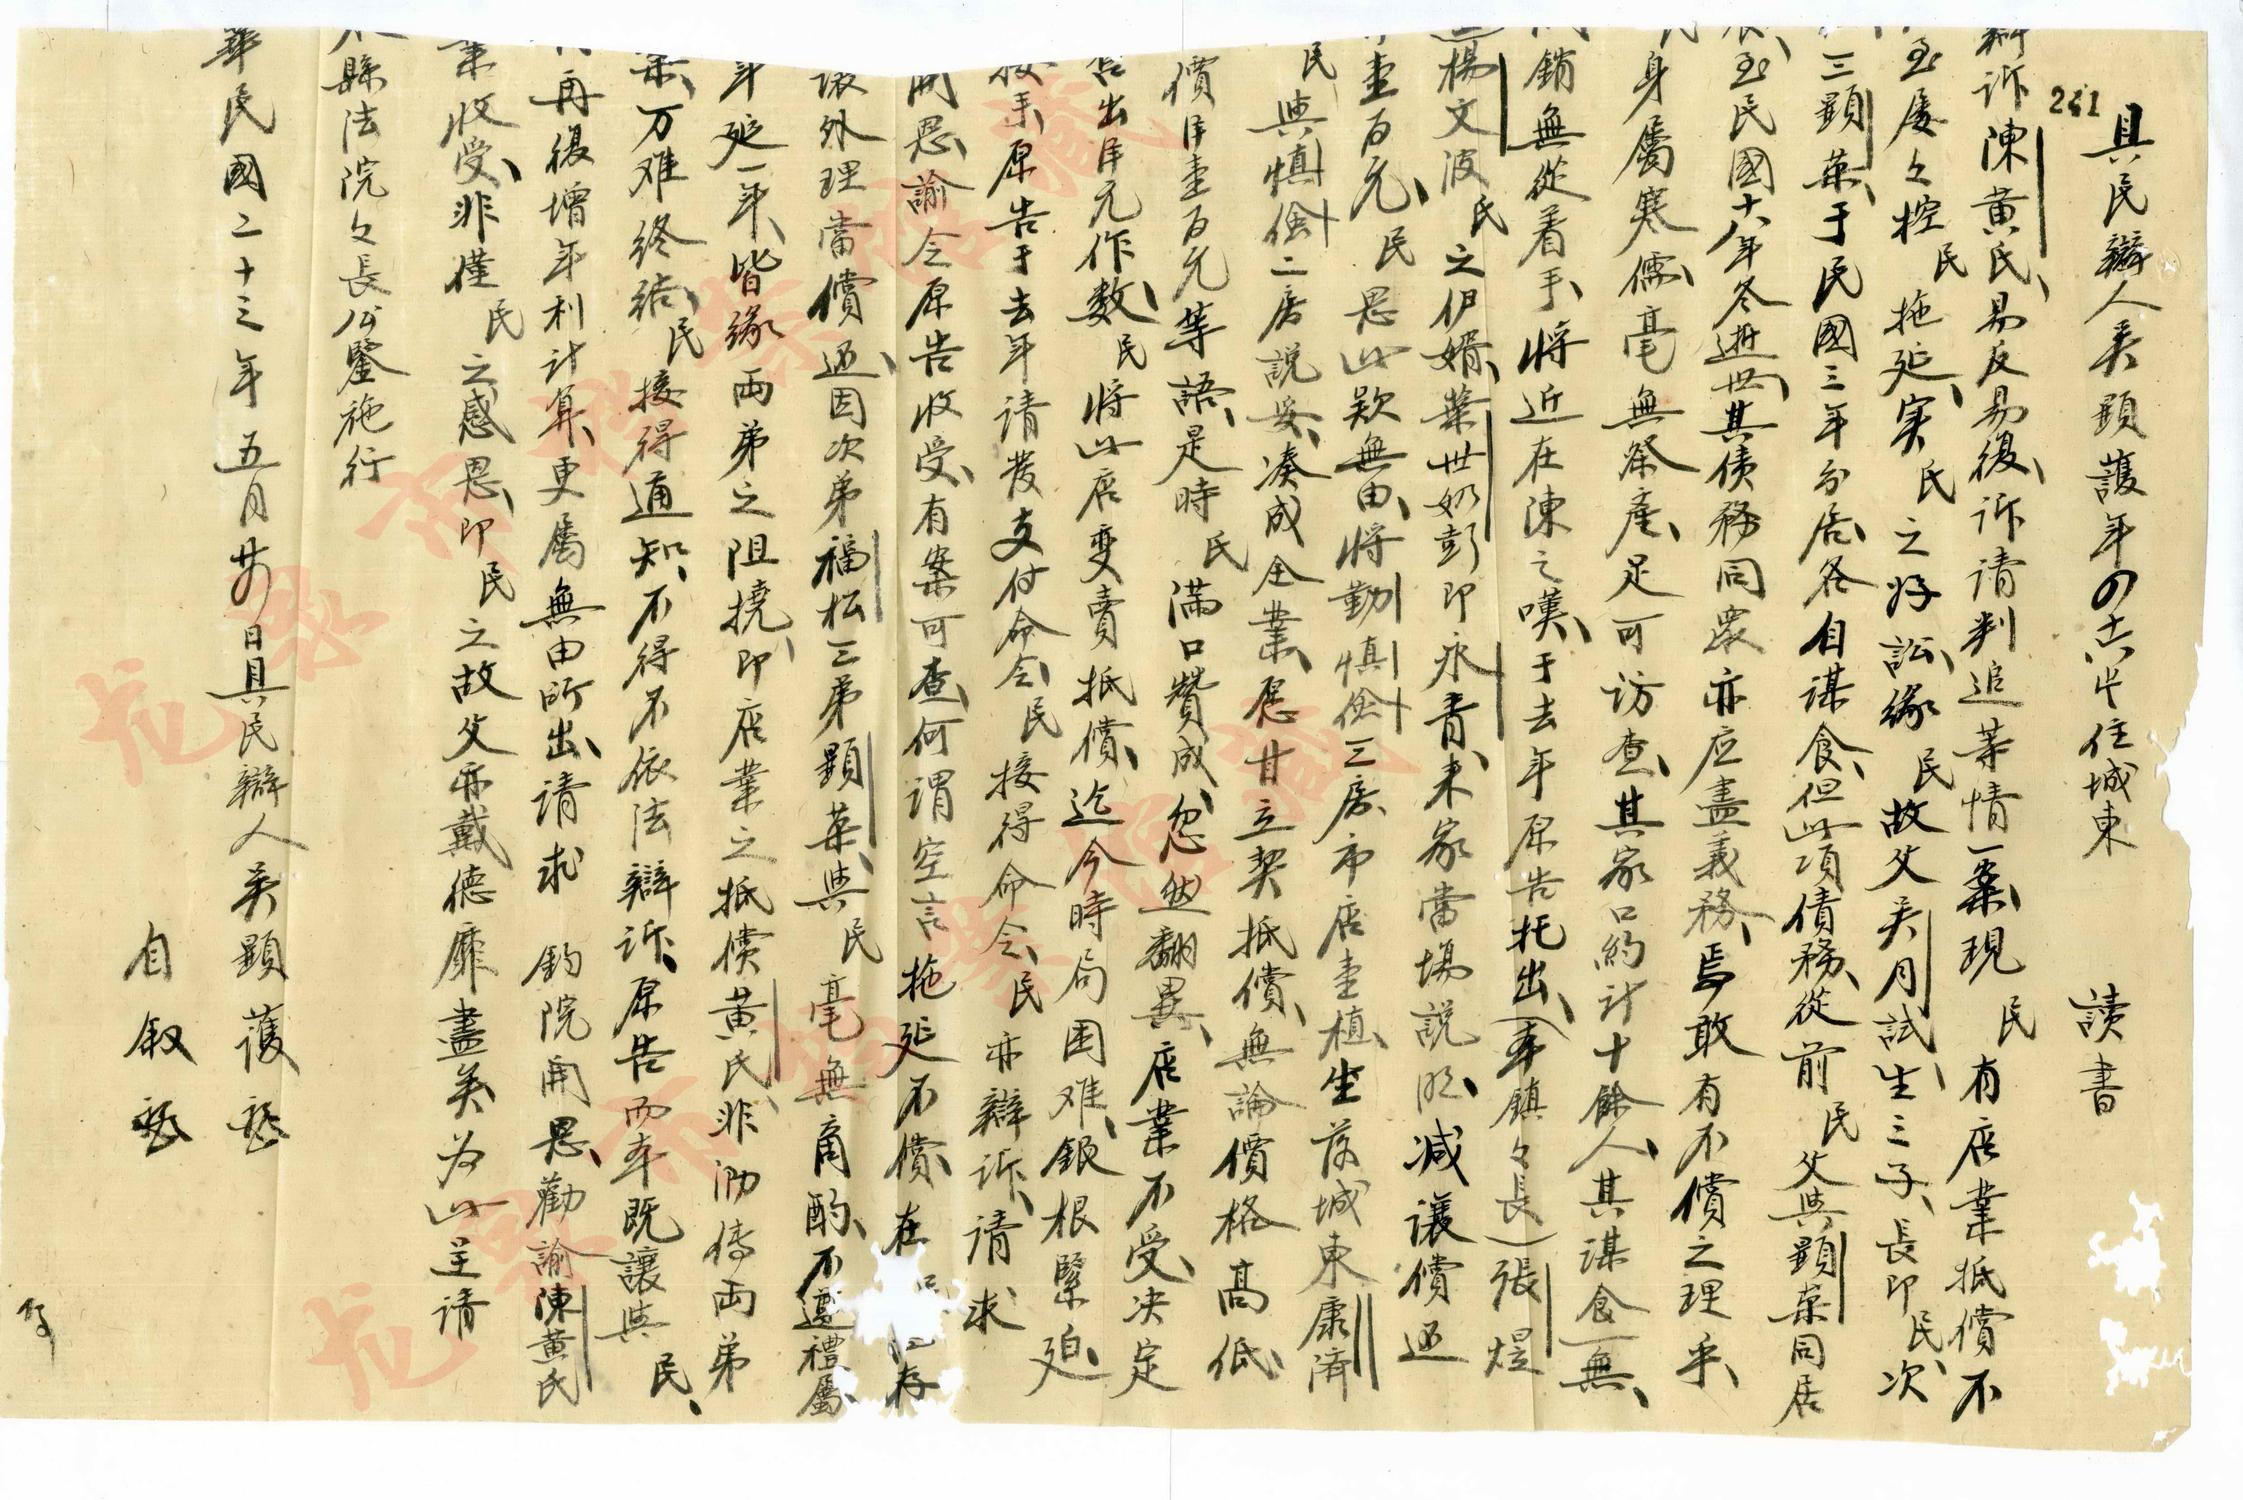 具民辯人吳顯護年四十六歲住城東 讀書
261
辯訴陳黃氏易反易復訴请判追等情一案現民有店業抵償不
屡々控民拖延实民之好訟緣民故父吴月試生三子長即民次
三顯棻于民國三年分居各自謀食但此項債務從前民父與顯棻同居
至民國十八年冬逝世其债務同眾亦应盡義務焉敢有不償之理乎
身屬寒儒毫無祭產足可访查其家口約计十餘人其谋食無
銷無從着手將近在陳之嘆于去年原告托出(本鎮々長)張煜
楊文波民之伊婿葉世如彭即永青来家當場説明减讓償还
壹百元民思此款無由将勤慎儉三房市店壹植坐落城東康濟
民與慎儉二房説妥凑成全業愿甘立契抵償無論價格高低
價洋壹百元等語是時民满口赞成忽然翻異店業不受决定
告出洋元作数民将此店变賣抵償迄今時局困难銀根緊迫
接手原告于去年请发支付命令民接得命令民亦辯訴请求
開恩諭令原告收受有案可查何謂空言拖延不償在
讓外理當償还因次弟福松三弟顯棻與民毫無商酌不遵禮屬
年延一年皆缘両弟之阻撓即店業之抵償黃氏非沕传両弟
棻万难终结民接得通知不得不依法辯訴原告两年既讓與民
再復增年利计算更屬無由所出请求 鈞院開恩勸諭陳黃氏
業收受非僅民之感恩即民之故父亦戴德靡盡矣为此呈请
縣法院々長公鑒施行
華民國二十三年五月廿 日具民辯人吴顯護
自叙